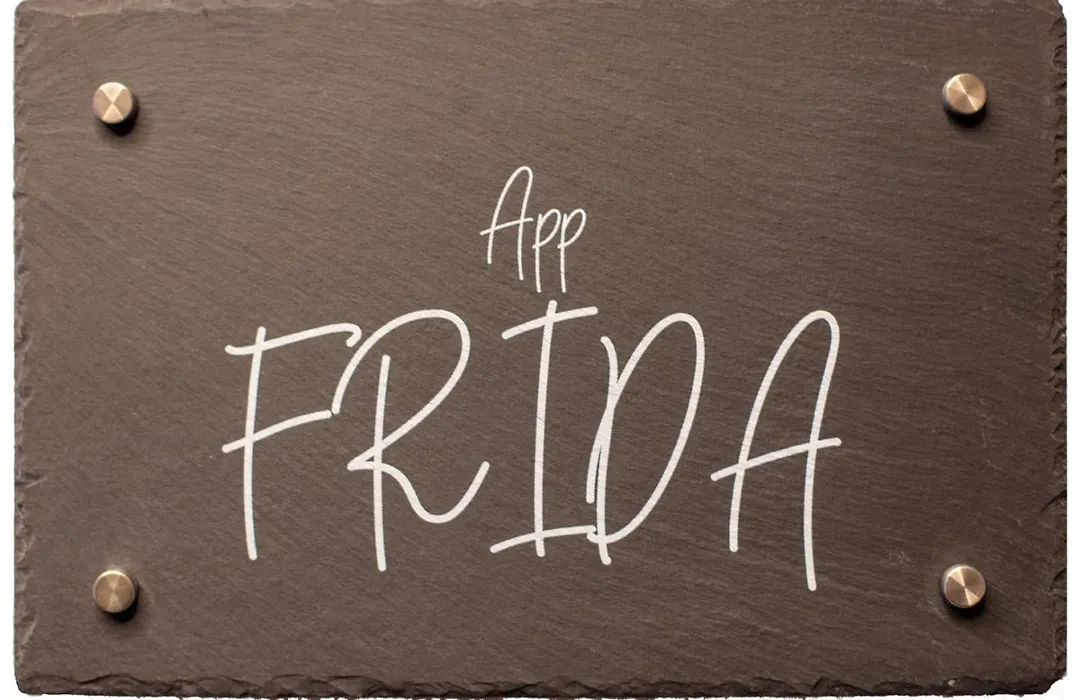 App
FRIDA